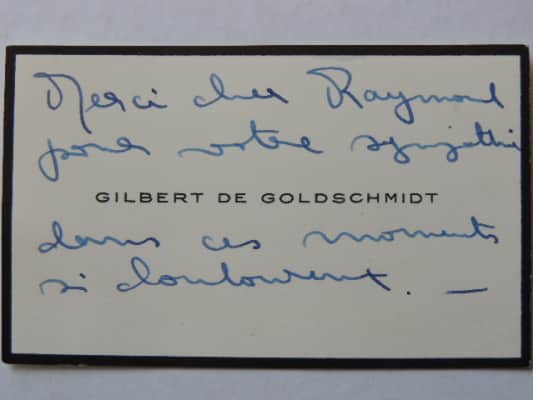 Merci cher Raymond
pour votre sympathie
GILBERT DE GOLDSCHMIDT
dans ces moments
si douloureux. —